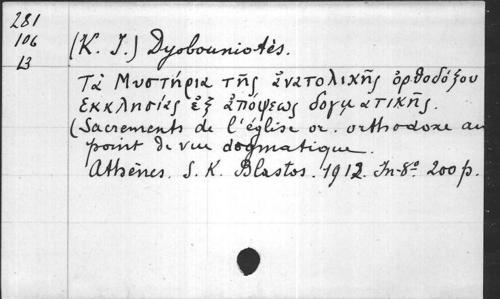 281
106
13
(K. I.) Dyobouniotès.
Τὰ Μυστήρια τῆς ἀνατολικῆς ὀρθοδόξου
Εκκλησίας ἐξ ἀπόψεως δογματικῆς.
(Sacrements de l'église or. orthodoxe au
point de vue dogmatique.
Athènes. S. K. Blastos. 1912. In-8º. 200 p.